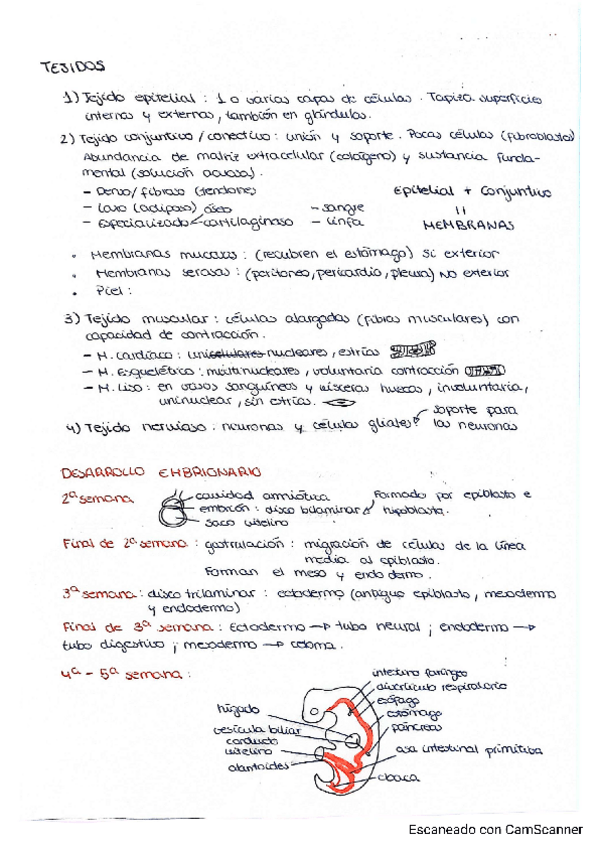 TEJIDOS
1) Tejido epitelial : 1 o varias capas de células. Tapiza superficies
internas y externas, también en glándulas.
2) Tejido conjuntivo / conectivo : unión y soporte. Pocas células (fibroblastos)
Abundancia de matriz extracelular (colágeno) y sustancia funda-
mental (solución acuosa).
- Denso / fibroso (tendones)
- Laxo (adiposo) óseo - sangre
- Especializado cartilaginoso - linfa
Epitelial + Conjuntivo
=
MEMBRANAS
• Membranas mucosas : (recubren el estómago) sí exterior
• Membranas serosas : (peritoneo, pericardio, pleura) NO exterior
• Piel :
3) Tejido muscular : células alargadas (fibras musculares) con
capacidad de contracción.
- M. cardíaco : nucleares, estrías
- M. Esquelético : multinucleares, voluntaria contracción
- M. Liso : en vasos sanguíneos y vísceras huecas, involuntaria,
uninuclear, sin estrías.
4) Tejido nervioso : neuronas y células gliales
soporte para
las neuronas
DESARROLLO EMBRIONARIO
2ª semana
cavidad amniótica
embrión : disco bilaminar
saco vitelino
Formado por epiblasto e
hipoblasto.
Final de 2ª semana : gastrulación : migración de células de la línea
media al epiblasto.
Forman el meso y endodermo.
3ª semana : disco trilaminar : ectodermo (antiguo epiblasto, mesodermo
y endodermo)
Final de 3ª semana : Ectodermo → tubo neural ; endodermo →
tubo digestivo ; mesodermo → celoma.
4ª - 5ª semana :
intestino faríngeo
divertículo respiratorio
esófago
estómago
páncreas
asa intestinal primitiva
cloaca
hígado
vesícula biliar
conducto
vitelino
alantoides
Escaneado con CamScanner